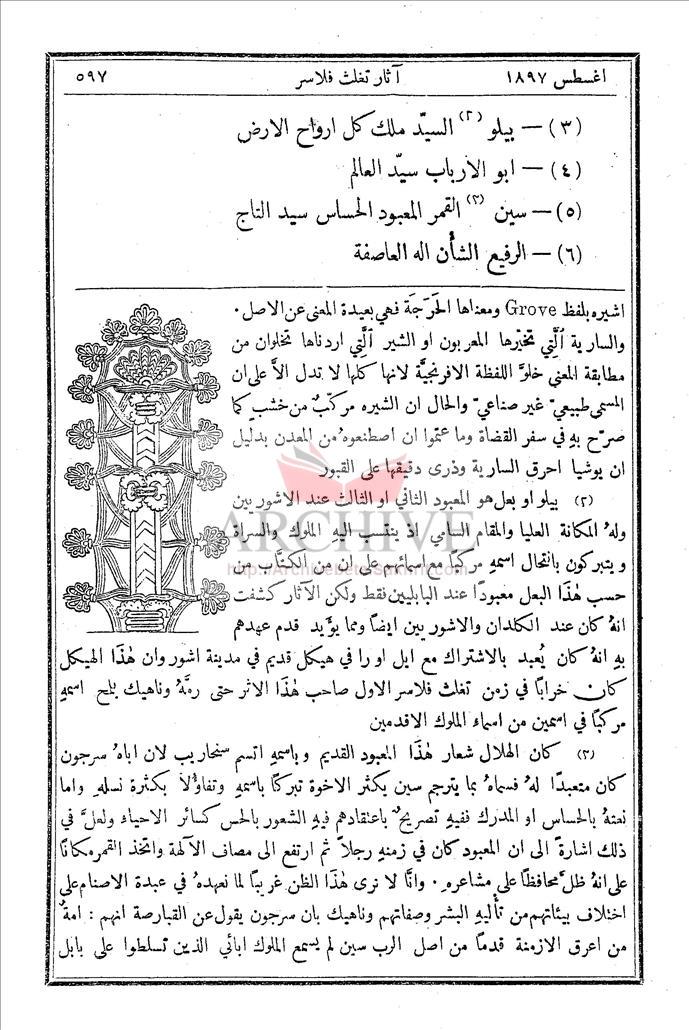 اغسطس ١٨٩٧ آثار تغلث فلاسر ٥٩٧
(٣) — بيلو (٢) السيّد ملك كل ارواح الارض
(٤) — ابو الارباب سيّد العالم
(٥) — سين (٣) القمر المعبود الحساس سيد التاج
(٦) — الرفيع الشأن اله العاصفة
اشيره بلفظ Grove ومعناها الحَرَجَة فهي بعيدة المعنى عن الاصل .
والسارية الَّتي تخيَّرها المعربون او الشير الَّتي اردناها تخلوان من
مطابقة المعنى خلوَّ اللفظة الافرنجيَّة لانها كلها لا تدل الاَّ على ان
المسمى طبيعيّ غير صناعيّ والحال ان الشيره مركبٌ من خشب كما
صرّح بهِ في سفر القضاة وما عتموا ان اصطنعوهُ من المعدن بدليل
ان يوشيا احرق السارية وذرى دقيقها على القبور
(٢) بيلو او بعل هو المعبود الثاني او الثالث عند الاشوريين
ولهُ المكانة العليا والمقام السامي اذ ينتسب اليهِ الملوك والسراة
ويتبركون بانتحال اسمهِ مركبًا مع اسمائهم على ان من الكتَّاب من
حسب هٰذا البعل معبودًا عند البابليين فقط ولكن الآثار كشفت
انهُ كان عند الكلدان والاشوريين ايضًا ومما يؤيد قدم عهدهم
بهِ انهُ كان يُعبد بالاشتراك مع ايل او را في هيكل قديم في مدينة اشور وان هٰذا الهيكل
كان خرابًا في زمن تغلث فلاسر الاول صاحب هٰذا الاثر حتى رمَّهُ وناهيك بلمح اسمهِ
مركبًا في اسمين من اسماء الملوك الاقدمين
(٣) كان الهلال شعار هٰذا المعبود القديم وباسمهِ اتسم سنحاريب لان اباهُ سرجون
كان متعبدًا لهُ فسماهُ بما يترجم سين يكثر الاخوة تبركًا باسمهِ وتفاؤلاً بكثرة نسلهِ واما
نعتهُ بالحساس او المدرك ففيهِ تصريحٌ باعتقادهم فيهِ الشعور بالحس كسائر الاحياء ولعلَّ في
ذلك اشارةً الى ان المعبود كان في زمنهِ رجلاً ثم ارتفع الى مصاف الآلهة واتخذ القمر مكانًا
على انهُ ظلَّ محافظًا على مشاعره . وانَّا لا نرى هٰذا الظن غريبًا لما نعهدهُ في عبدة الاصنام على
اختلاف بيئاتهم من تأليهِ البشر وصفاتهم وناهيك بان سرجون يقول عن القبارصة انهم : امةٌ
من اعرق الازمنة قدمًا من اصل الرب سين لم يسمع الملوك ابائي الذين تسلطوا على بابل
ARCHIVE